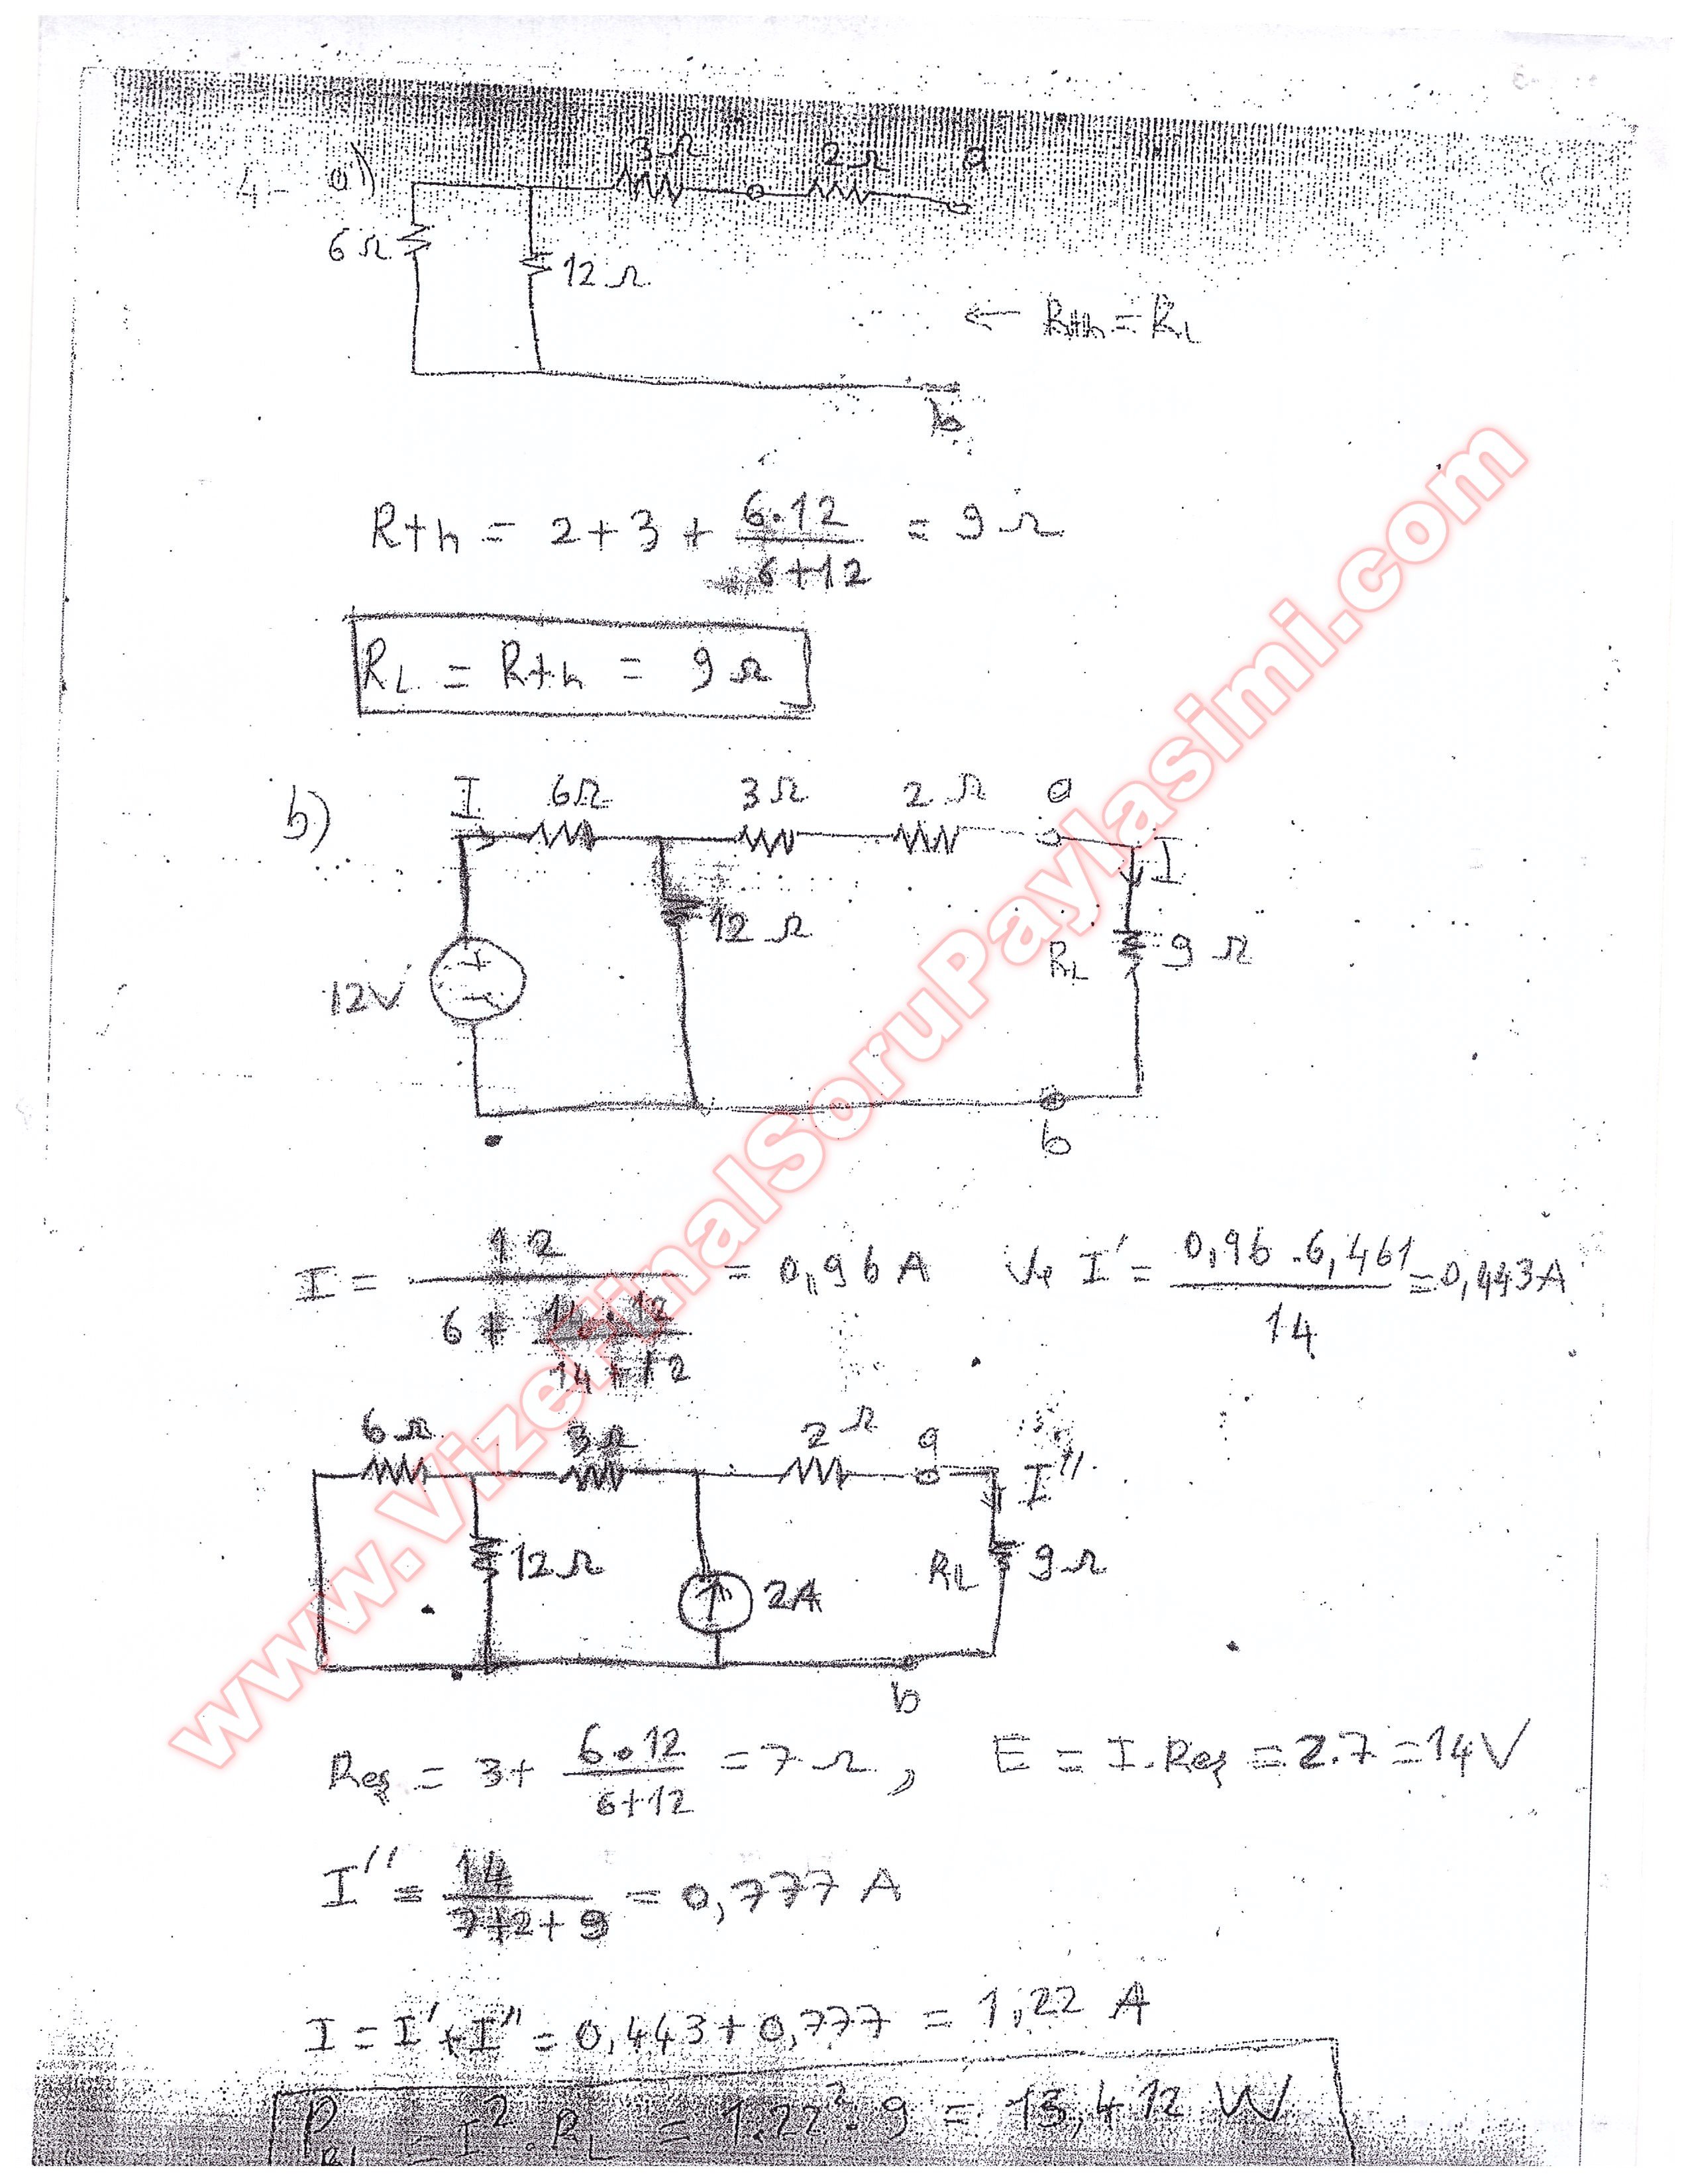 4- a)
3Ω 2Ω a
6Ω 12Ω
← Rth = RL
b
Rth = 2 + 3 + 6.12 / 6+12 = 9Ω
RL = Rth = 9Ω
b)
I 6Ω 3Ω 2Ω a
I
12V + - 12Ω RL 9Ω
b
I = 12 / 6 + 14.12 / 14+12 = 0,96 A ve I' = 0,96 . 6,461 / 14 = 0,443A
6Ω 3Ω 2Ω a
I''
12Ω 2A RL 9Ω
b
Req = 3 + 6.12 / 6+12 = 7Ω, E = I.Req = 2.7 = 14V
I'' = 14 / 7+2+9 = 0,777 A
I = I' + I'' = 0,443 + 0,777 = 1,22 A
PRL = I².RL = 1.22².9 = 13,412 W
www.VizeFinalSoruPaylasimi.com